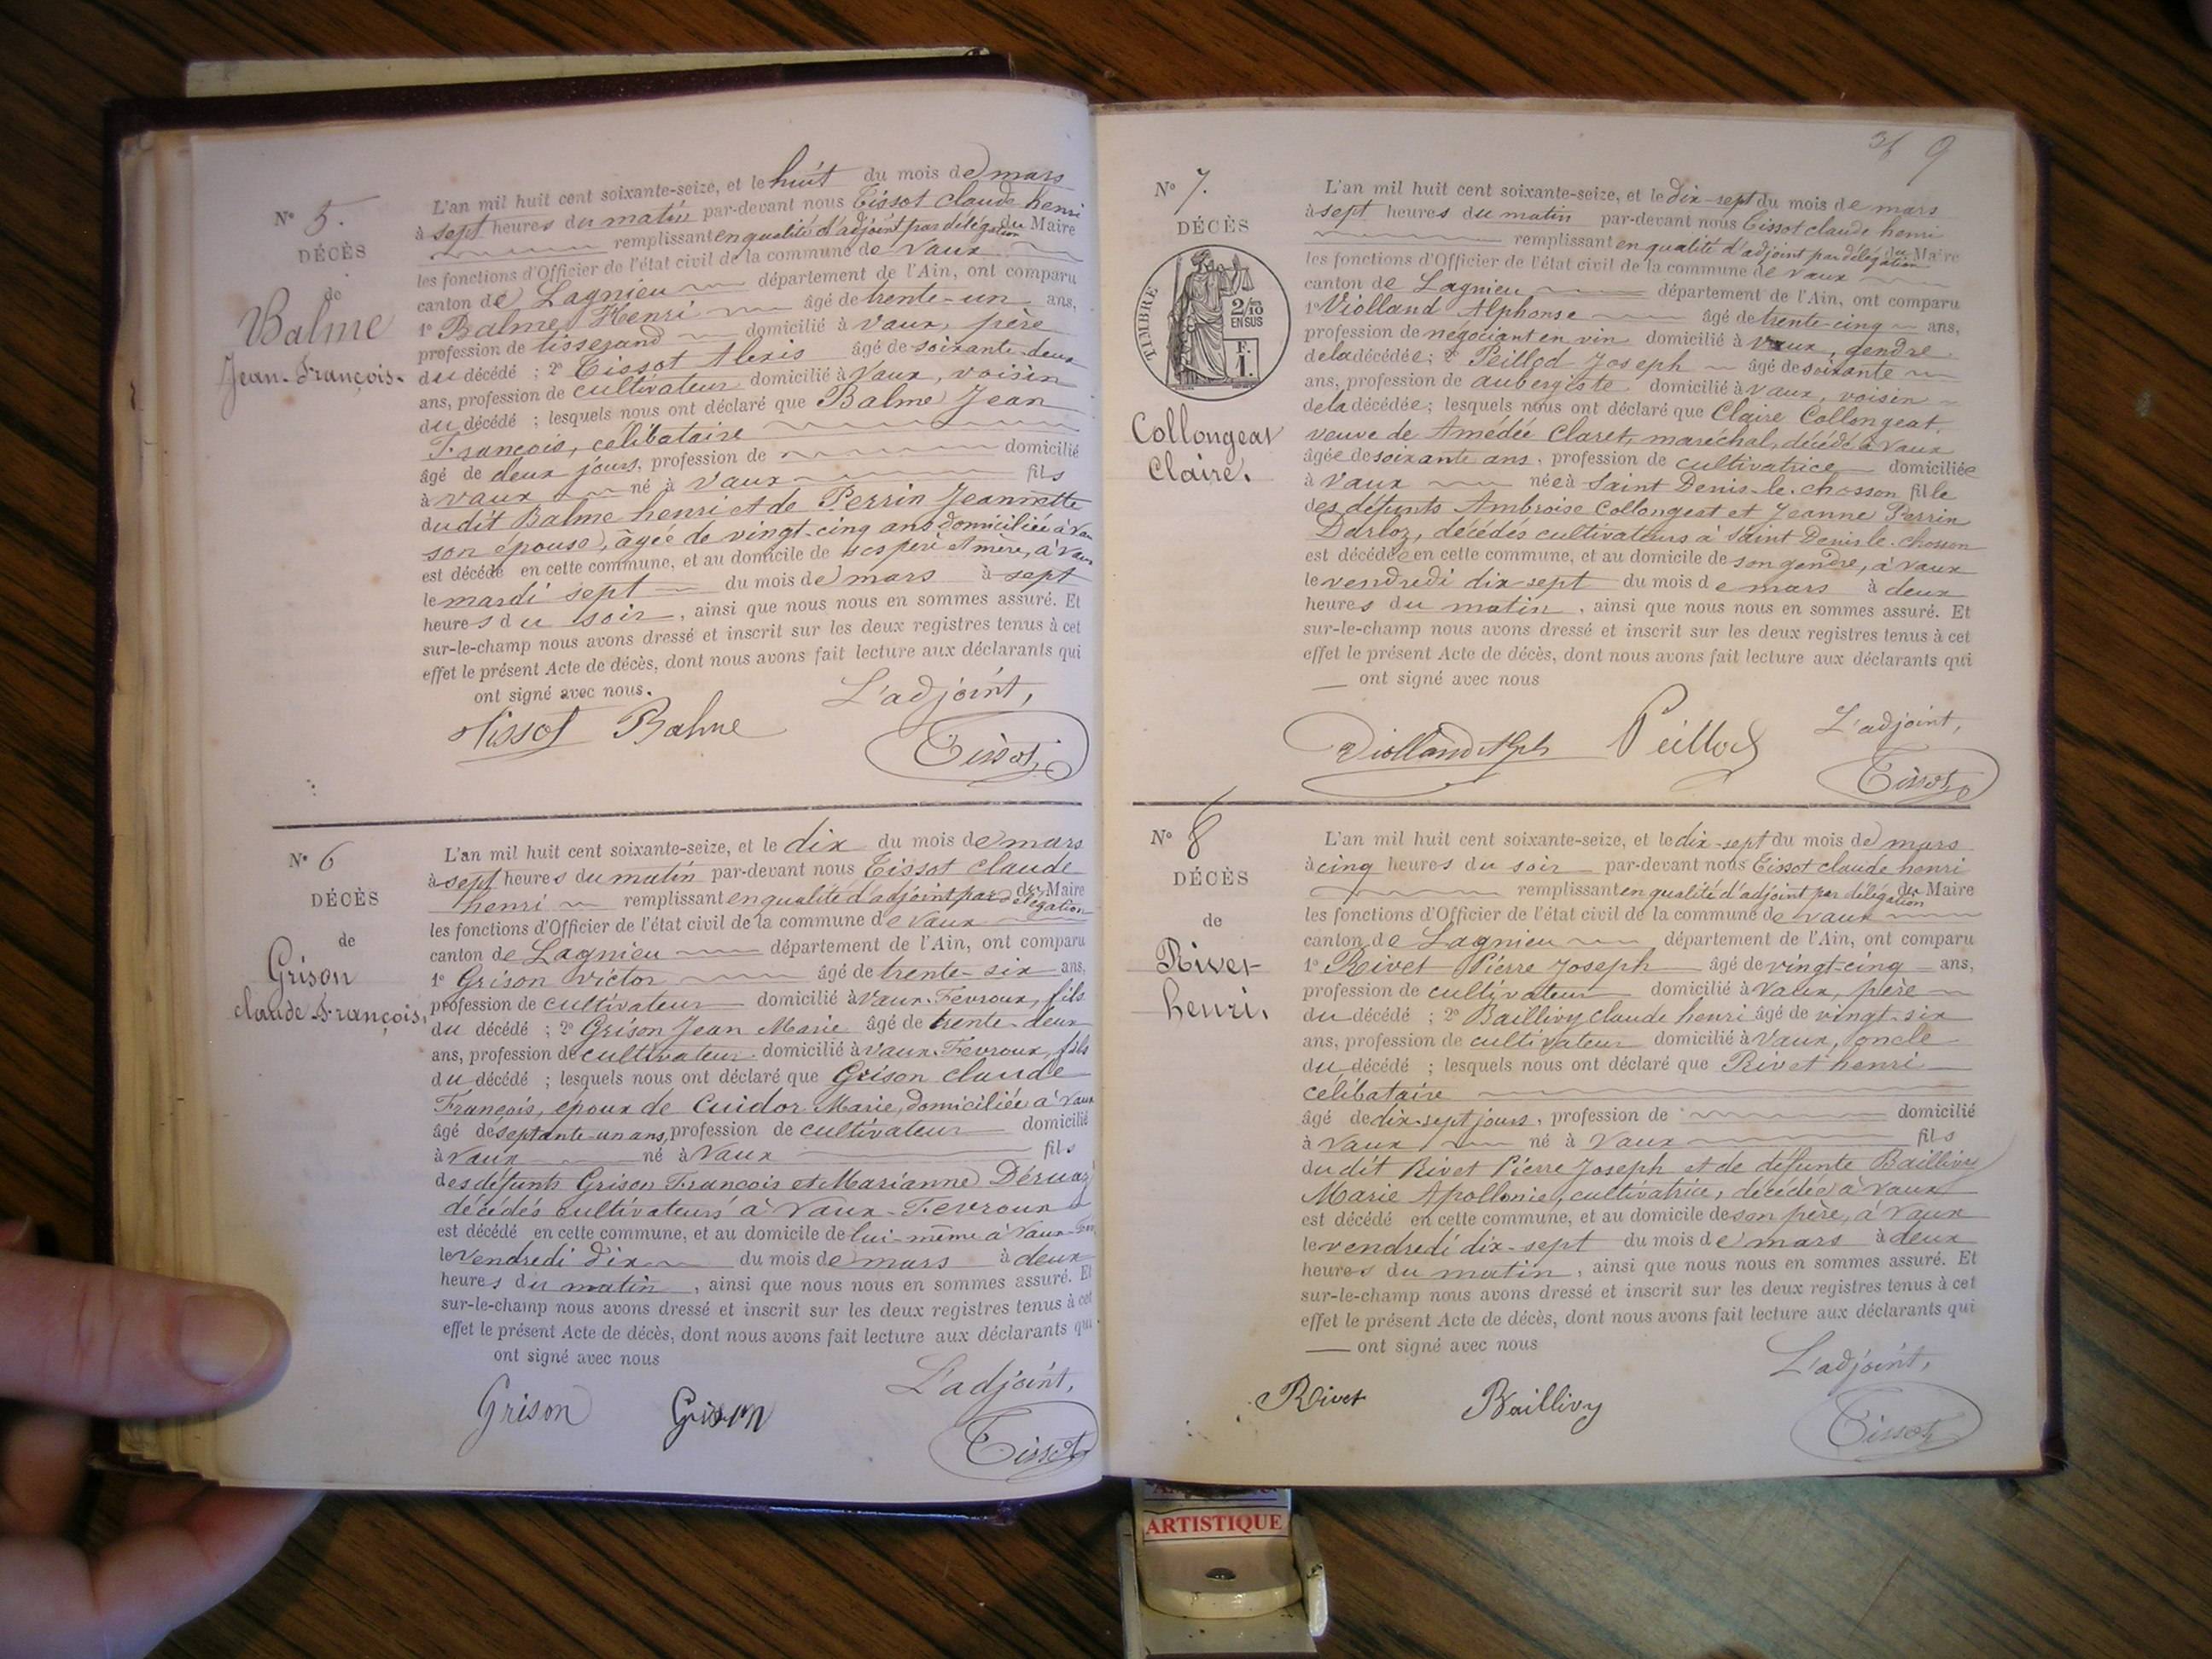 N° 5.
DÉCÈS
de
Balme
Jean-François.
L'an mil huit cent soixante-seize, et le huit du mois de mars
à sept heures du matin par-devant nous Tissot claude henri
remplissant en qualité d'adjoint par délégation du Maire
les fonctions d'Officier de l'état civil de la commune de Vaux
canton de Lagnieu département de l'Ain, ont comparu
1° Balme Henri âgé de trente-un ans,
profession de tisserand domicilié à Vaux, père
du décédé ; 2° Tissot Alexis âgé de soixante-deux
ans, profession de cultivateur domicilié à Vaux, voisin
du décédé ; lesquels nous ont déclaré que Balme Jean
François, célibataire
âgé de deux jours, profession de domicilié
à Vaux né à Vaux fils
dudit Balme henri et de Perrin Jeannette
son épouse, agée de vingt-cinq ans domiciliée à Vaux
est décédé en cette commune, et au domicile de ses père et mère, à Vaux
le mardi sept du mois de mars à sept
heures du soir, ainsi que nous nous en sommes assuré. Et
sur-le-champ nous avons dressé et inscrit sur les deux registres tenus à cet
effet le présent Acte de décès, dont nous avons fait lecture aux déclarants qui
ont signé avec nous.
L'adjoint,
Tissot Balme Tissot
N° 6
DÉCÈS
de
Grison
claude François,
L'an mil huit cent soixante-seize, et le dix du mois de mars
à sept heures du matin par-devant nous Tissot claude
henri remplissant en qualité d'adjoint par délégation du Maire
les fonctions d'Officier de l'état civil de la commune de Vaux
canton de Lagnieu département de l'Ain, ont comparu
1° Grison Victor âgé de trente-six ans,
profession de cultivateur domicilié à Vaux-Fevroux, fils
du décédé ; 2° Grison Jean Marie âgé de trente-deux
ans, profession de cultivateur domicilié à Vaux-Fevroux, fils
du décédé ; lesquels nous ont déclaré que Grison claude
François, époux de Cuidor Marie, domiciliée à Vaux
âgé de septante-un ans, profession de cultivateur domicilié
à Vaux né à Vaux fils
des défunts Grison François et Marianne Déruaz
décédés cultivateurs à Vaux-Fevroux
est décédé en cette commune, et au domicile de lui-même à Vaux-Fev
le Vendredi dix du mois de mars à deux
heures du matin, ainsi que nous nous en sommes assuré. Et
sur-le-champ nous avons dressé et inscrit sur les deux registres tenus à cet
effet le présent Acte de décès, dont nous avons fait lecture aux déclarants qui
ont signé avec nous
L'adjoint,
Grison Grison Tissot
9
N° 7.
DÉCÈS
TIMBRE
2/10
EN SUS
F.
1.
Collongeat
Claire.
L'an mil huit cent soixante-seize, et le dix-sept du mois de mars
à sept heures du matin par-devant nous Tissot claude henri
remplissant en qualité d'adjoint par délégation du Maire
les fonctions d'Officier de l'état civil de la commune de Vaux
canton de Lagnieu département de l'Ain, ont comparu
1° Violland Alphonse âgé de trente-cinq ans,
profession de négociant en vin domicilié à Vaux, gendre
de la décédée ; 2° Peillod Joseph âgé de soixante
ans, profession de aubergiste domicilié à Vaux, voisin
de la décédée ; lesquels nous ont déclaré que Claire Collongeat,
veuve de Amédée Claret, maréchal, décédé à Vaux
âgée de soixante ans, profession de cultivatrice domiciliée
à Vaux née à Saint Denis-le-chosson fille
des défunts Ambroise Collongeat et Jeanne Perrin
Darloz, décédés cultivateurs à Saint Denis le-chosson
est décédée en cette commune, et au domicile de son gendre, à Vaux
le vendredi dix-sept du mois de mars à deux
heures du matin, ainsi que nous nous en sommes assuré. Et
sur-le-champ nous avons dressé et inscrit sur les deux registres tenus à cet
effet le présent Acte de décès, dont nous avons fait lecture aux déclarants qui
ont signé avec nous
L'adjoint,
Violland Alph Peillod Tissot
N° 8
DÉCÈS
de
Rivet
henri.
L'an mil huit cent soixante-seize, et le dix-sept du mois de mars
à cinq heures du soir par-devant nous Tissot claude henri
remplissant en qualité d'adjoint par délégation du Maire
les fonctions d'Officier de l'état civil de la commune de Vaux
canton de Lagnieu département de l'Ain, ont comparu
1° Rivet Pierre Joseph âgé de vingt-cinq ans,
profession de cultivateur domicilié à Vaux, père
du décédé ; 2° Baillivy claude henri âgé de vingt-six
ans, profession de cultivateur domicilié à Vaux, oncle
du décédé ; lesquels nous ont déclaré que Rivet henri
célibataire
âgé de dix-sept jours, profession de domicilié
à Vaux né à Vaux fils
dudit Rivet Pierre Joseph et de défunte Baillivy
Marie Apollonie, cultivatrice, décédée à Vaux
est décédé en cette commune, et au domicile de son père, à Vaux
le vendredi dix-sept du mois de mars à deux
heures du matin, ainsi que nous nous en sommes assuré. Et
sur-le-champ nous avons dressé et inscrit sur les deux registres tenus à cet
effet le présent Acte de décès, dont nous avons fait lecture aux déclarants qui
ont signé avec nous
L'adjoint,
Rivet Baillivy Tissot
ARTISTIQUE